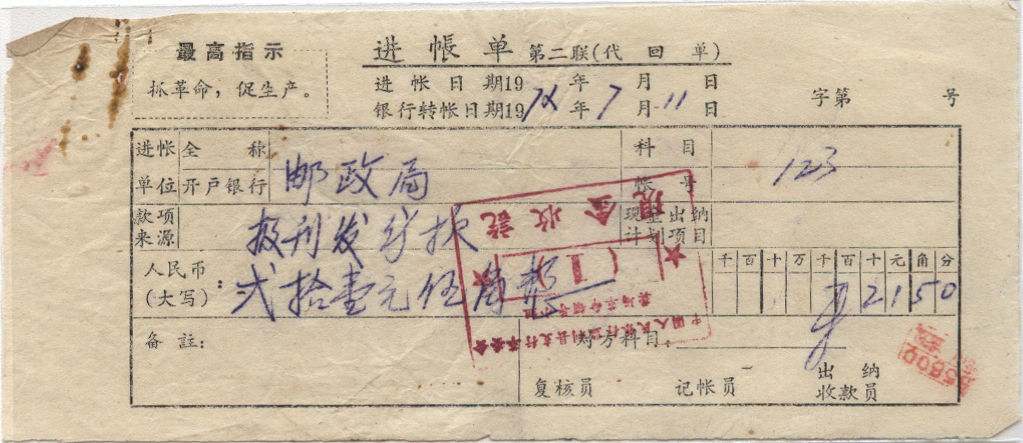 最高指示
抓革命，促生产。
进帐单 第二联(代回单)
进帐日期19 年 月 日
银行转帐日期19 年 7 月 11 日
字第 号
进帐单位 全称 邮政局 科目 123
开户银行 帐号
款项来源 报刊发行款 现金出纳计划项目
人民币(大写)： 弍拾壹元伍角整
千百十万千百十元角分
2150
备註：
对方科目：
复核员 记帐员 出纳收款员
现金收讫